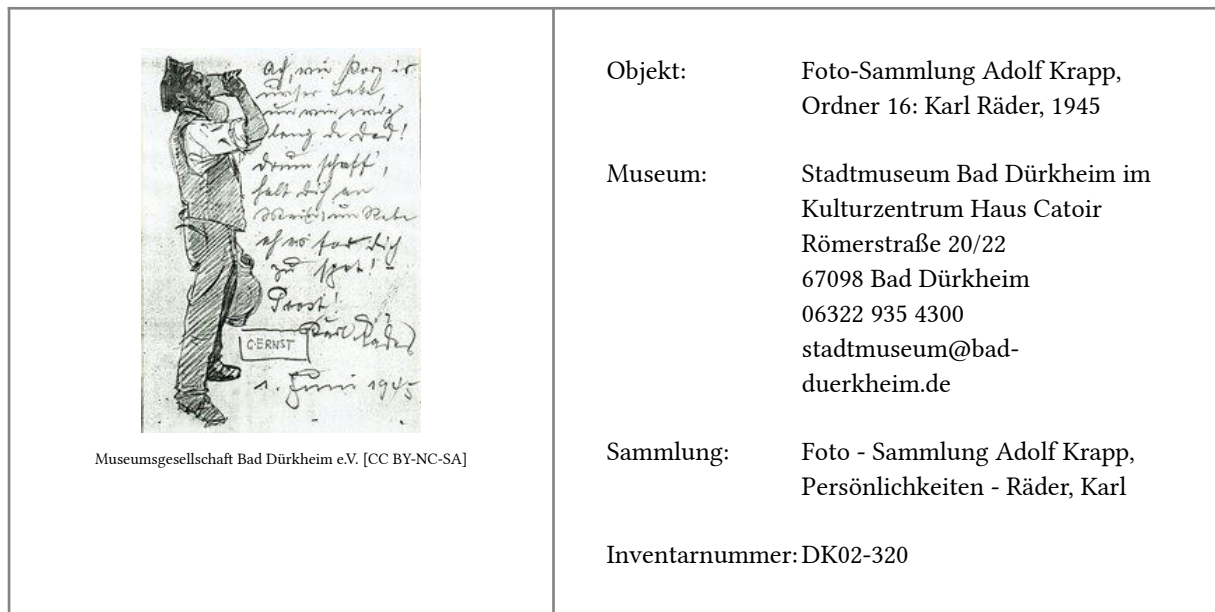 Ach, wie korz is
unser Lebe,
un wie ewig
lang de Dod!
Drum schaff',
halt dich an
Wei(n) un Rebe
eh es for dich
zu spot! -
Prost!
Karl Räder
G·ERNST
1. Juni 1945
Museumsgesellschaft Bad Dürkheim e.V. [CC BY-NC-SA]
Objekt: Foto-Sammlung Adolf Krapp,
Ordner 16: Karl Räder, 1945
Museum: Stadtmuseum Bad Dürkheim im
Kulturzentrum Haus Catoir
Römerstraße 20/22
67098 Bad Dürkheim
06322 935 4300
stadtmuseum@bad-
duerkheim.de
Sammlung: Foto - Sammlung Adolf Krapp,
Persönlichkeiten - Räder, Karl
Inventarnummer: DK02-320